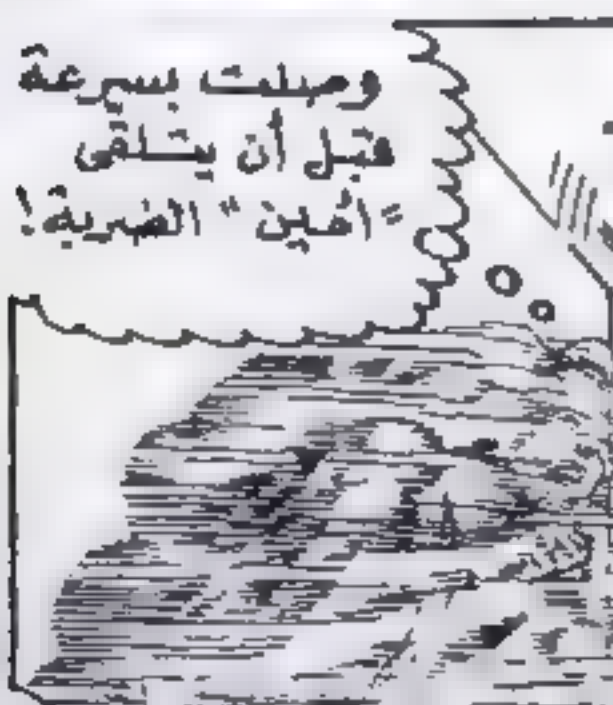 وصلت بسرعة
قبل أن يتلقى
"أمين" الضربة!